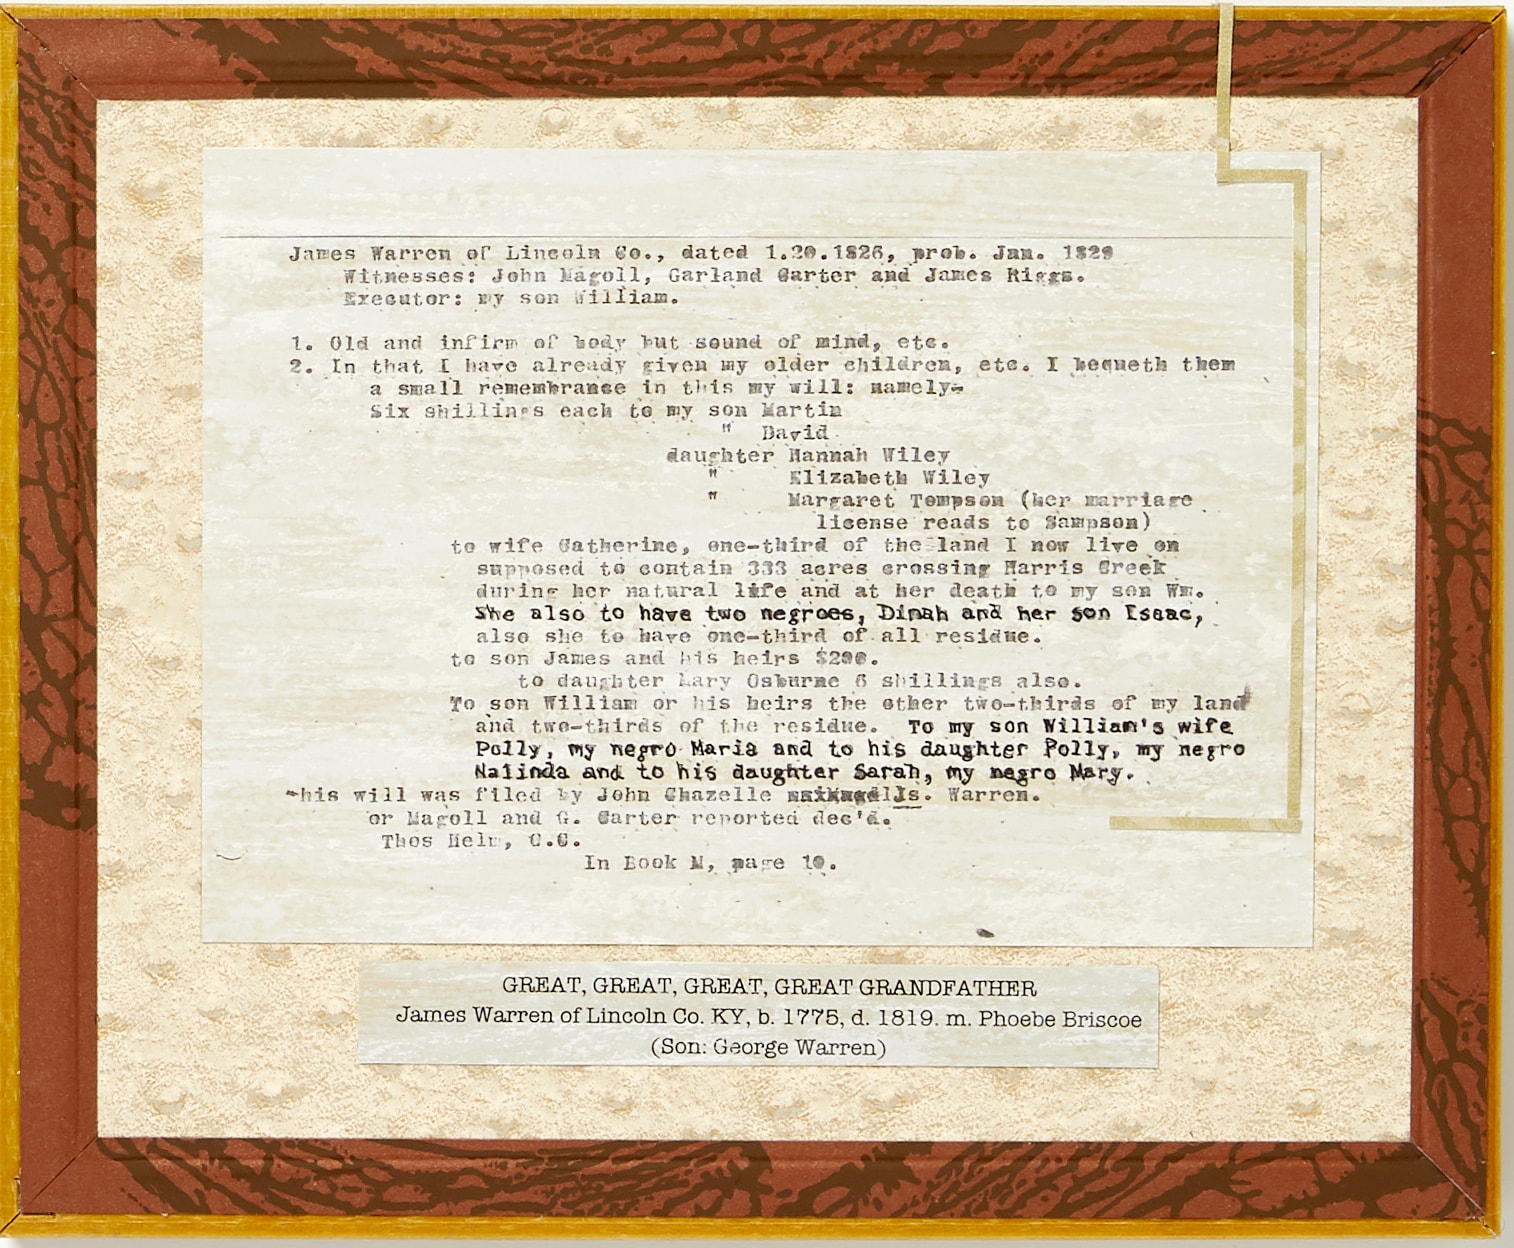 James Warren of Lincoln Co., dated 1.20.1826, prob. Jan. 1829
Witnesses: John Magoll, Garland Carter and James Riggs.
Executor: my son William.
1. Old and infirm of body but sound of mind, etc.
2. In that I have already given my older children, etc. I bequeth them
a small remembrance in this my will: namely-
Six shillings each to my son Martin
" David
daughter Hannah Wiley
" Elizabeth Wiley
" Margaret Tompson (her marriage
license reads to Sampson)
to wife Catherine, one-third of the land I now live on
supposed to contain 333 acres crossing Harris Creek
during her natural life and at her death to my son Wm.
She also to have two negroes, Dinah and her son Isaac,
also she to have one-third of all residue.
to son James and his heirs $200.
to daughter Mary Osburne 6 shillings also.
To son William or his heirs the other two-thirds of my land
and two-thirds of the residue. To my son William's wife
Polly, my negro Maria and to his daughter Polly, my negro
Malinda and to his daughter Sarah, my negro Mary.
This will was filed by John Chazelle Js. Warren.
or Magoll and G. Carter reported dec'd.
Thos Helm, C.C.
In Book M, page 10.
GREAT, GREAT, GREAT, GREAT GRANDFATHER
James Warren of Lincoln Co. KY, b. 1775, d. 1819. m. Phoebe Briscoe
(Son: George Warren)